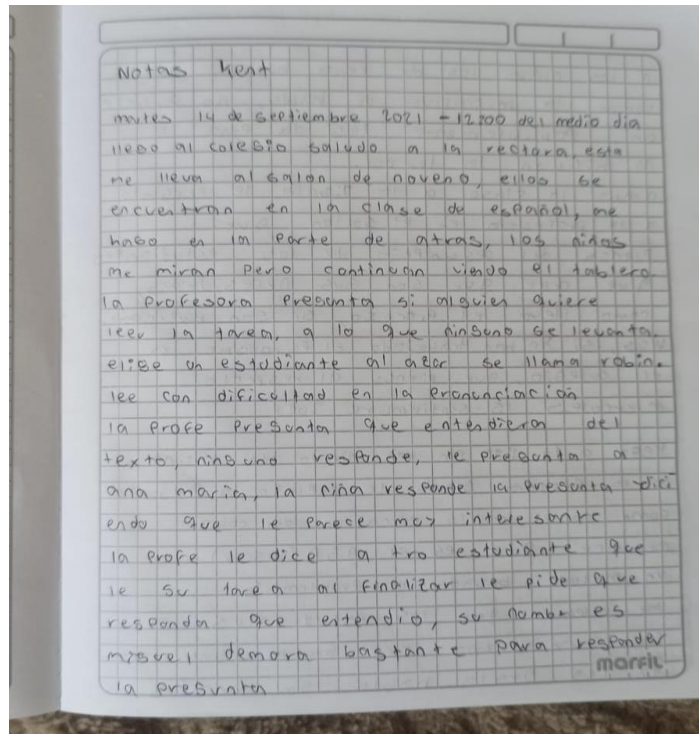 Notas Kent
martes 14 de septiembre 2021 - 12:00 del medio dia
llego al colegio saludo a la rectora, esta
me lleva al salon de noveno, ellos se
encuentran en la clase de español, me
hago en la parte de atras, los niños
me miran pero continuan viendo el tablero.
la profesora pregunta si alguien quiere
leer la tarea, a lo que ninguno se levanta.
elige un estudiante al azar se llama robin.
lee con dificultad en la pronunciación
la profe pregunta que entendieron del
texto, ninguno responde, le pregunta a
ana maria, la niña responde la pregunta dici
endo que le parece muy interesante
la profe le dice a tro estudiante que
le su tarea al finalizar le pide que
responda que entendio, su nombre es
miguel demora bastante para responder
marfil
la pregunta